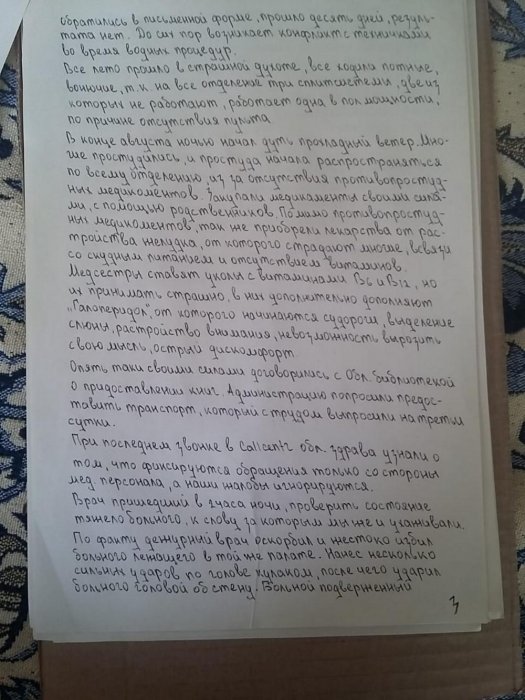 обратились в письменной форме, прошло десять дней, резуль-
тата нет. До сих пор возникает конфликт с техничками
во время водных процедур.
Все лето прошло в страшной духоте, все ходили потные,
вонючие, т.к. на все отделение три сплитсистемы, две из
которых не работают, работает одна в пол мощности,
по причине отсутствия пульта.
В конце августа ночью начал дуть прохладный ветер. Мно-
гие простудились, и простуда начала распространяться
по всему отделению, из за отсутствия противопростуд-
ных медикоментов. Закупали медикаменты своими сила-
ми, с помощью родственников. Помимо противопростуд-
ных медикоментов, так же приобрели лекарства от рас-
тройства желудка, от которого страдают многие, всвязи
со скудным питанием и отсутствием витаминов.
Медсестры ставят уколы с витаминами B6 и B12, но
их принимать страшно, в них дополнительно дополняют
"Галоперидол", от которого начинаются судороги, выделение
слюны, расстройство внимания, невозможность вырозить
свою мысль, острый дискомфорт.
Опять таки своими силами договорились с Обл. библиотекой
о предоставлении книг. Администрацию попросили предос-
тавить транспорт, который с трудом выпросили на третьи
сутки.
При последнем звонке в Callcentr обл. здрава узнали о
том, что фиксируются обращения только со стороны
мед. персонала, а наши жалобы игнорируются.
Врач пришедший в 2 часа ночи, проверить состояние
тяжело больного, к слову за которым мы же и ухаживали.
По факту дежурный врач оскорбил и жестоко избил
больного лежащего в той же палате. Нанес несколько
сильных ударов по голове кулаком, после чего ударил
больного головой об стену. Больной подверженный
3